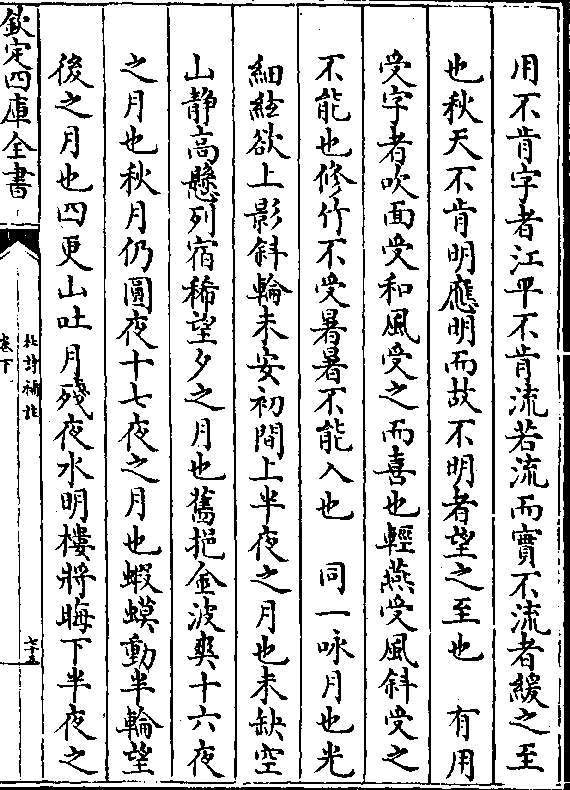 用不肯字者江平不肯流若流而實不流者緩之至
也秋天不肯明應明而故不明者望之至也　有用
受字者吹面受和風受之而喜也輕燕受風斜受之
不能也修竹不受暑暑不能入也　同一咏月也光
細弦欲上影斜輪未安初間上半夜之月也未缺空
山静高懸列宿稀望夕之月也舊挹金波爽十六夜
之月也秋月仍圓夜十七夜之月也蝦蟆動半輪望
後之月也四更山吐月殘夜水明樓將晦下半夜之
欽定四庫全書
杜詩補註
卷下